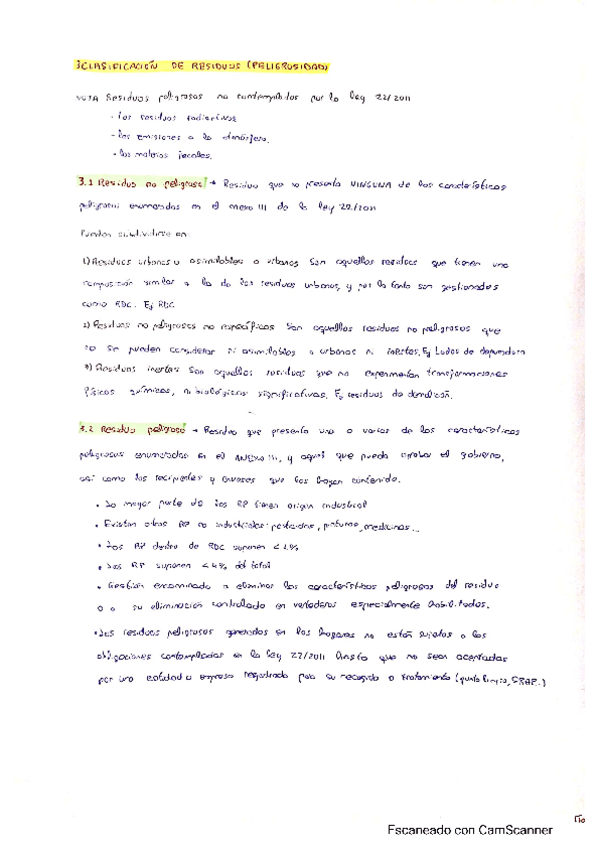 3 CLASIFICACIÓN DE RESIDUOS (PELIGROSIDAD)
NOTA Residuos peligrosos no contemplados por la ley 22/2011
- los residuos radiactivos
- las emisiones a la atmósfera.
- las materias fecales.
3.1 Residuo no peligroso → Residuo que no presenta NINGUNA de las características
peligrosas enumeradas en el anexo III de la ley 22/2011
Pueden subdividirse en:
1) Residuos urbanos o asimilables a urbanos Son aquellos residuos que tienen una
composición similar a la de los residuos urbanos, y por lo tanto son gestionados
como RDC. Ej RDC
2) Residuos no peligrosos no específicos Son aquellos residuos no peligrosos que
no se pueden considerar ni asimilables a urbanos ni inertes. Ej Lodos de depuradora
3) Residuos inertes Son aquellos residuos que no experimentan transformaciones
físicas químicas, ni biológicas significativas. Ej residuos de demolición.
3.2 Residuo peligroso → Residuo que presenta una o varias de las características
peligrosas enumeradas en el ANEXO III, y aquel que pueda aprobar el gobierno,
así como los recipientes y envases que los hayan contenido.
• La mayor parte de los RP tienen origen industrial
• Existen otros RP no industriales: pesticidas, pinturas, medicinas...
• Los RP dentro de RDC suponen < 1%
• Los RP suponen < 4% del total
• Gestión encaminada a eliminar las características peligrosas del residuo
o a su eliminación controlada en vertederos especialmente habilitados.
• Los residuos peligrosos generados en los hogares no están sujetos a las
obligaciones contempladas en la ley 22/2011 hasta que no sean aceptadas
por una entidad o empresa registrada para su recogida o tratamiento (punto limpio,
Escaneado con CamScanner